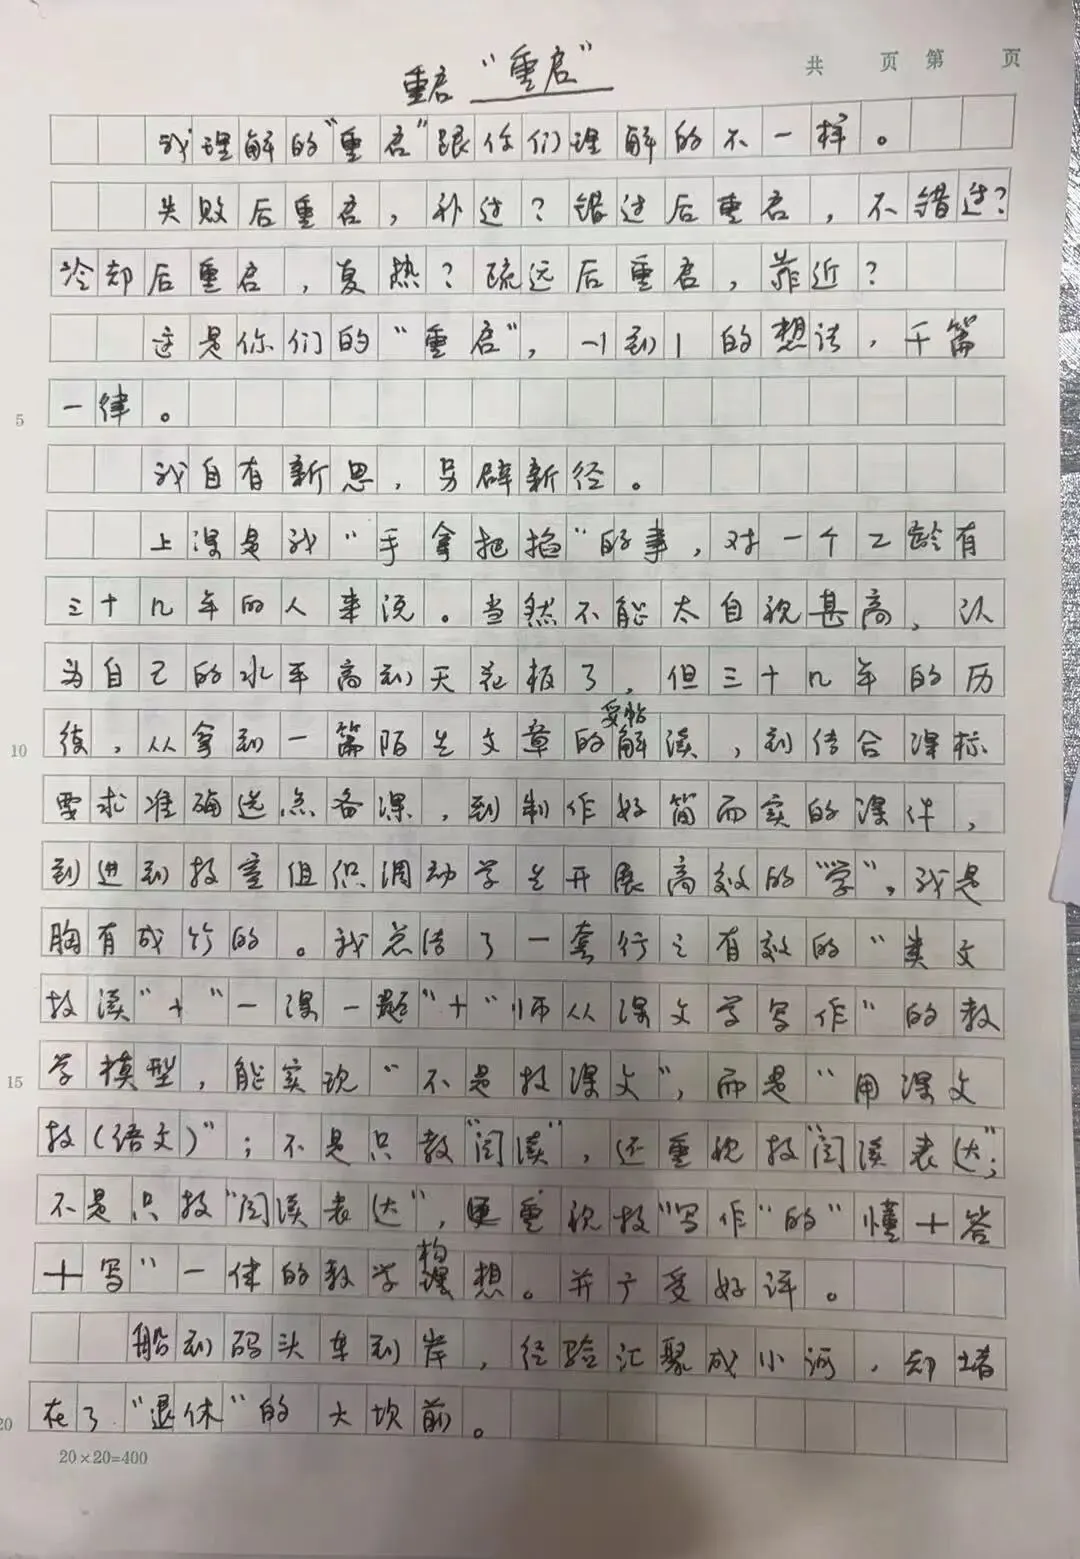 共 页 第 页
重启“重启”
我理解的“重启”跟你们理解的不一样。
失败后重启，补过？错过后重启，不错过？
冷却后重启，复热？疏远后重启，靠近？
这是你们的“重启”，-1到1的想法，千篇
5 一律。
我自有新思，另辟新径。
上课是我“手拿把掐”的事，对一个工龄有
三十几年的人来说。当然不能太自视甚高，认
为自己的水平高到天花板了，但三十几年的历
10 练，从拿到一篇陌生文章的妥帖解读，到结合课标
要求准确选点备课，到制作好简而实的课件，
到进到教室组织调动学生开展高效的“学”，我是
胸有成竹的。我总结了一套行之有效的“类文
教读”+“一课一题”+“师从课文学写作”的教
15 学模型，能实现“不是教课文”，而是“用课文
教（语文）”；不是只教“阅读”，还重视教“阅读表达”；
不是只教“阅读表达”，更重视教“写作”的“懂+答
+写”一体的教学构想。并广受好评。
船到码头车到岸，经验汇聚成小河，却堵
20 在了“退休”的大坝前。
20×20=400